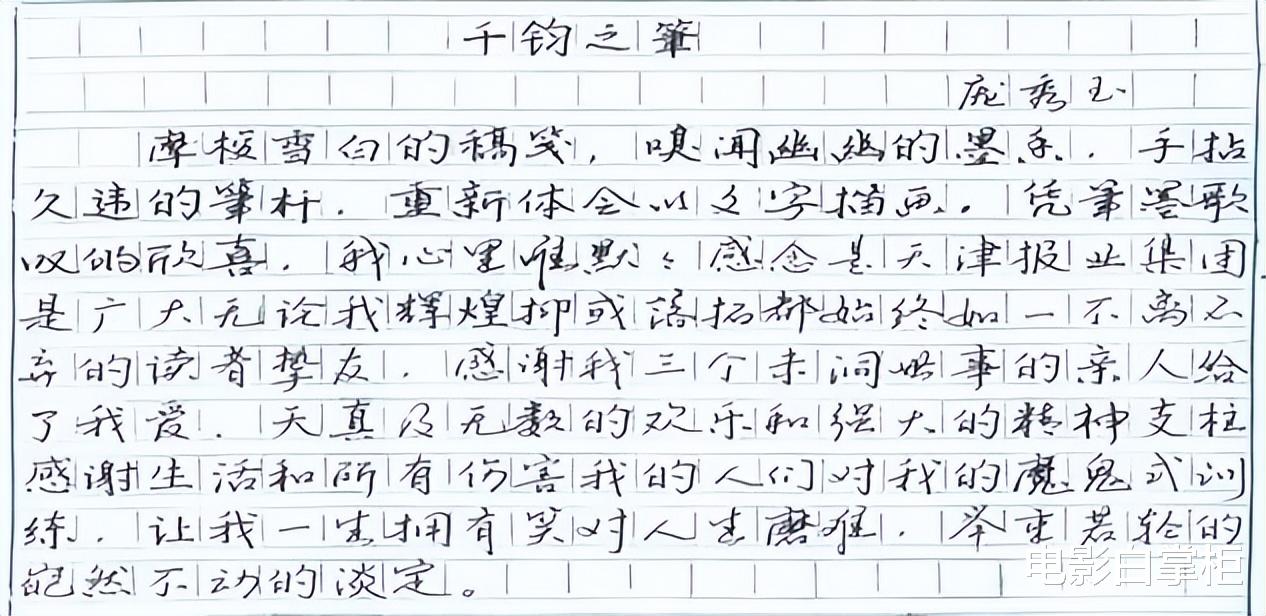 千钧之筆
庞秀玉
摩梭雪白的稿笺，嗅闻幽幽的墨香，手拈
久违的筆杆，重新体会以文字描画。凭筆墨歌
叹的欣喜，我心里唯默々感念是天津报业集团
是广大无论我辉煌抑或落拓都始终如一不离不
弃的读者挚友，感谢我三个未洞世事的亲人给
了我爱，天真及无数的欢乐和强大的精神支柱
感谢生活和所有伤害我的人们对我的魔鬼式训
练，让我一生拥有笑对人生磨难，举重若轻的
岿然不动的淡定。
电影白掌柜